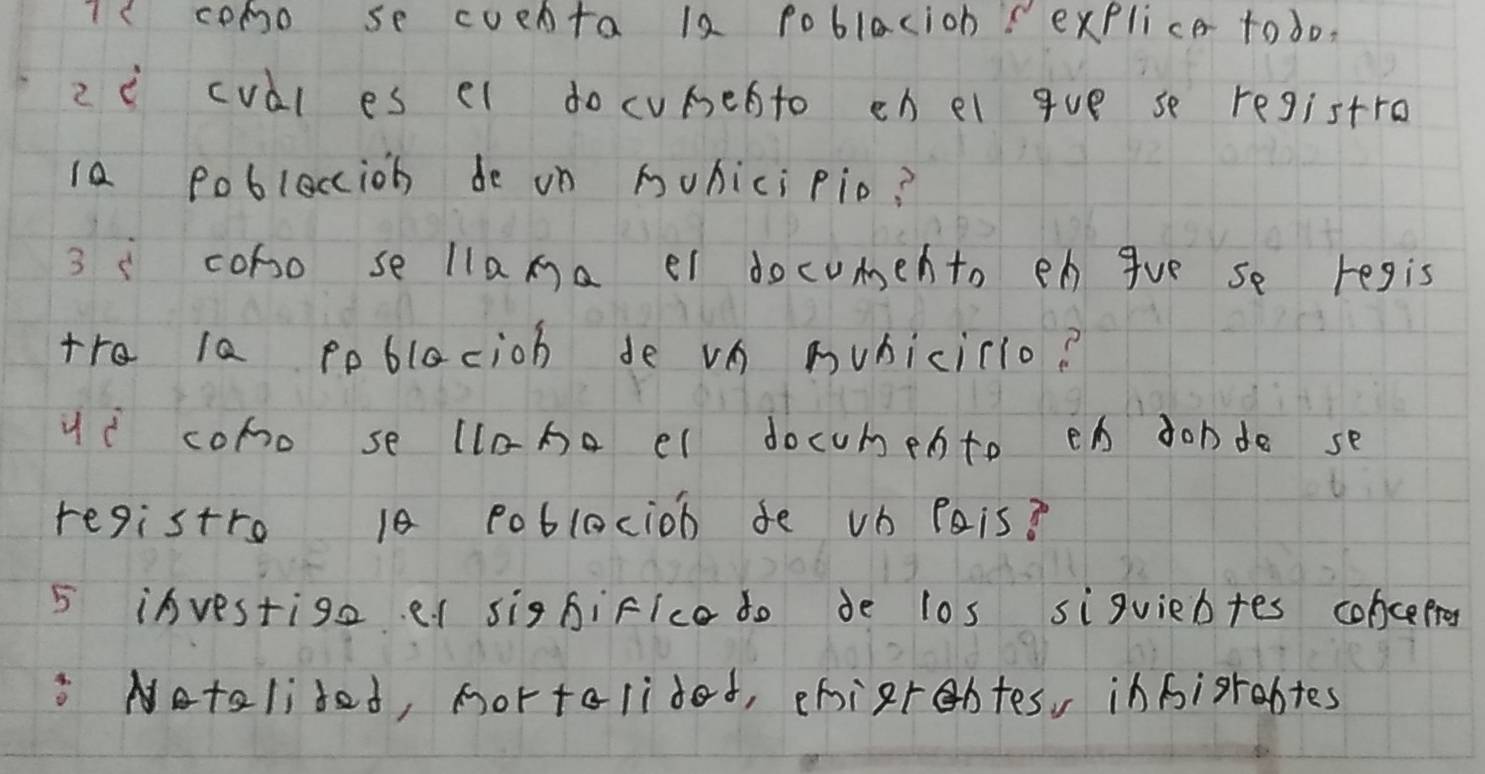 1¿ como se cuenta la poblacion? explica todo.
2¿ cuàl es el documento en el que se registra
la poblaccion de un municipio?
3¿ como se llama el documento en que se regis
tra la poblacion de un municipio?
4¿ como se llama el documento en donde se
registra la població́n de un pais?
5 investiga el significado de los siguientes conceptos
: Natalidad, mortalidad, emigrantes, inmigrantes